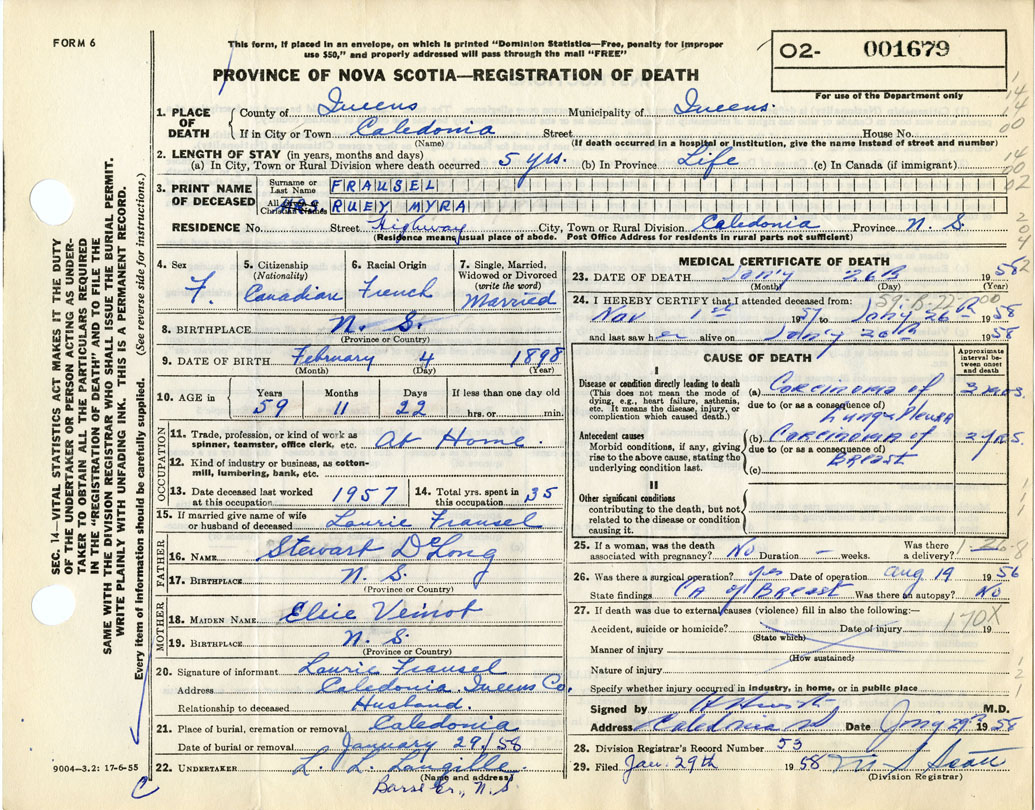 FORM 6
This form, if placed in an envelope, on which is printed "Dominion Statistics—Free, penalty for improper
use $50," and properly addressed will pass through the mail "FREE"
O2- 001679
For use of the Department only
PROVINCE OF NOVA SCOTIA—REGISTRATION OF DEATH
1. PLACE OF DEATH County of Queens Municipality of Queens.
If in City or Town Caledonia Street House No.
(Name) (If death occurred in a hospital or institution, give the name instead of street and number)
2. LENGTH OF STAY (in years, months and days)
(a) In City, Town or Rural Division where death occurred 5 yrs. (b) In Province Life (c) In Canada (if immigrant)
3. PRINT NAME OF DECEASED Surname or Last Name FRAUSEL
All Christian Names MRS RUEY MYRA
RESIDENCE No. Street Highway City, Town or Rural Division Caledonia Province N. S.
(Residence means usual place of abode. Post Office Address for residents in rural parts not sufficient)
4. Sex F.
5. Citizenship (Nationality) Canadian
6. Racial Origin French
7. Single, Married, Widowed or Divorced (write the word) Married
8. BIRTHPLACE N. S.
(Province or Country)
9. DATE OF BIRTH February 4 1898
(Month) (Day) (Year)
10. AGE in Years Months Days If less than one day old
59 11 22 hrs. or min.
OCCUPATION
11. Trade, profession, or kind of work as spinner, teamster, office clerk, etc. At Home.
12. Kind of industry or business, as cotton-mill, lumbering, bank, etc.
13. Date deceased last worked at this occupation 1957
14. Total yrs. spent in this occupation 35
15. If married give name of wife or husband of deceased Laurie Frausel
FATHER
16. NAME Stewart DeLong
17. BIRTHPLACE N. S.
(Province or Country)
MOTHER
18. MAIDEN NAME Elsie Veinot
19. BIRTHPLACE N. S.
(Province or Country)
20. Signature of informant Laurie Frausel
Address Caledonia. Queens Co.
Relationship to deceased Husband.
21. Place of burial, cremation or removal Caledonia
Date of burial or removal January 29/58
22. UNDERTAKER L. L. Langille
(Name and address)
N. S.
MEDICAL CERTIFICATE OF DEATH
23. DATE OF DEATH Jan'y 26th 1958
(Month) (Day) (Year)
24. I HEREBY CERTIFY that I attended deceased from:
Nov 1st 1957 to Jan'y 26th 1958
and last saw her alive on Jan'y 26th 1958
CAUSE OF DEATH
Approximate interval between onset and death
I
Disease or condition directly leading to death
(This does not mean the mode of dying, e.g., heart failure, asthenia, etc. It means the disease, injury, or complication which caused death.)
(a) Carcinoma of
due to (or as a consequence of)
Lung & Pleura
Antecedent causes
Morbid conditions, if any, giving rise to the above cause, stating the underlying condition last.
(b) Carcinoma of 2 yrs
due to (or as a consequence of)
Breast
(c)
II
Other significant conditions
contributing to the death, but not related to the disease or condition causing it.
25. If a woman, was the death associated with pregnancy? No Duration – weeks. Was there a delivery?
26. Was there a surgical operation? yes Date of operation Aug 19 1956
State findings CA of Breast Was there an autopsy? No
27. If death was due to external causes (violence) fill in also the following:—
Accident, suicide or homicide? Date of injury 19
170X
(State which)
Manner of injury
(How sustained)
Nature of injury
Specify whether injury occurred in industry, in home, or in public place
Signed by M.D.
Address Caledonia Date 1958
28. Division Registrar's Record Number 53
29. Filed Jan. 29th 1958
(Division Registrar)
SEC. 14—VITAL STATISTICS ACT MAKES IT THE DUTY
OF THE UNDERTAKER OR PERSON ACTING AS UNDER-
TAKER TO OBTAIN ALL THE PARTICULARS REQUIRED
IN THE "REGISTRATION OF DEATH" AND TO FILE THE
SAME WITH THE DIVISION REGISTRAR WHO SHALL ISSUE THE BURIAL PERMIT.
WRITE PLAINLY WITH UNFADING INK. THIS IS A PERMANENT RECORD.
Every item of information should be carefully supplied. (See reverse side for instructions.)
9004-3.2: 17-6-55